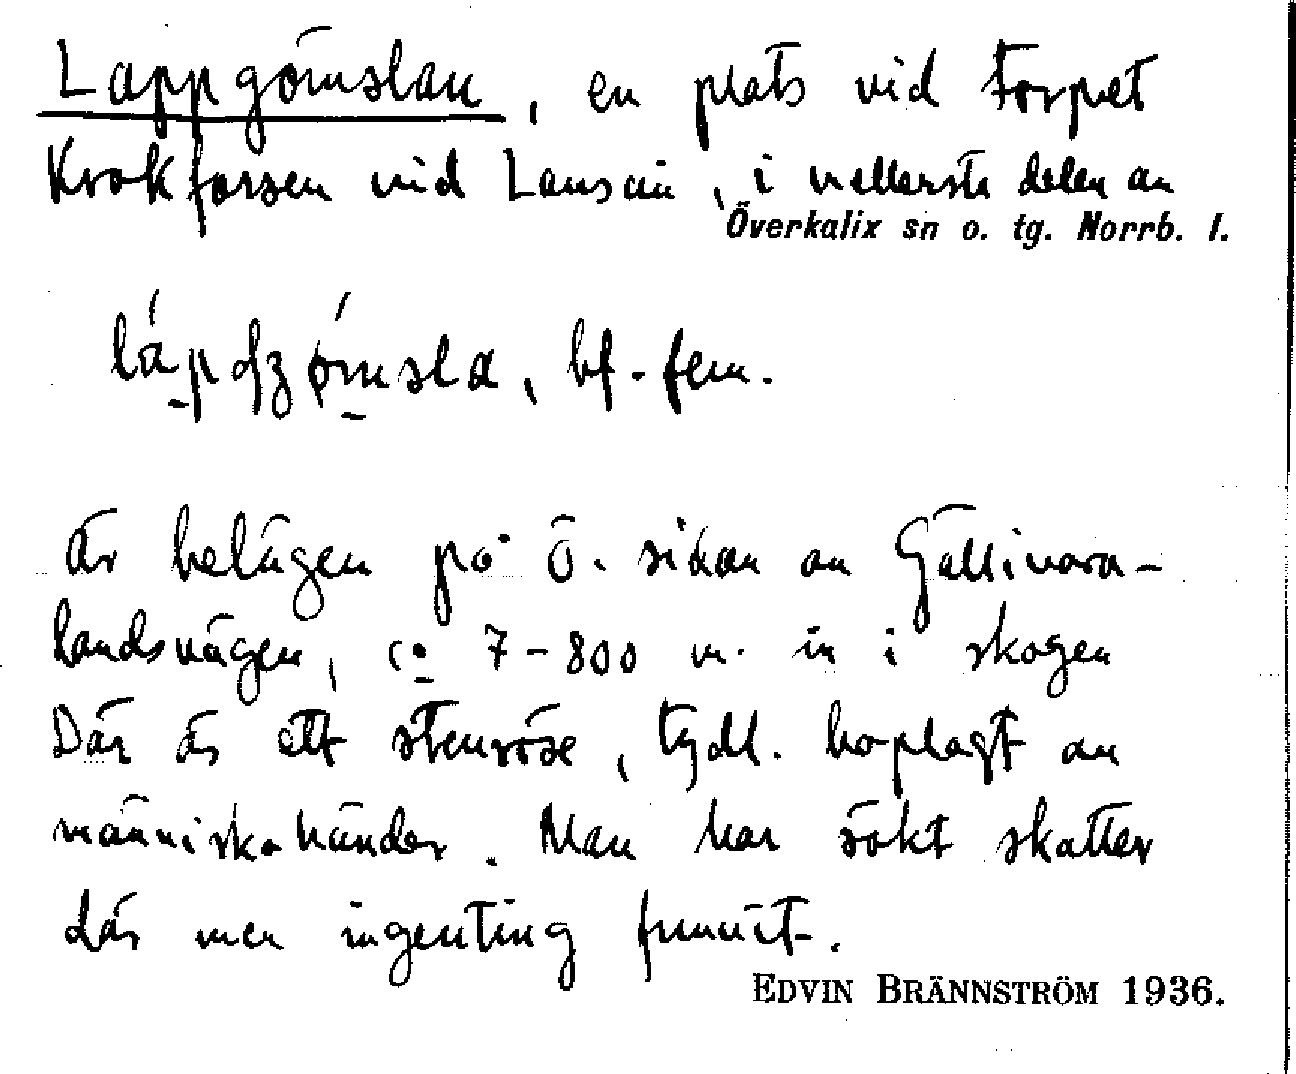 Lappgömslan, en plats vid torpet
Krokforsen vid Lansån, i nellerste delen av
Överkalix sn o. tg. Norrb. l.
bf. fem.
Är belägen på ö. sidan av Gällivara-
landsvägen, ca 7-800 m. in i skogen
Där är ett stenröse, tydl. hoplagt av
människohänder. Man har sökt skatter
där men ingenting funnit.
EDVIN BRÄNNSTRÖM 1936.